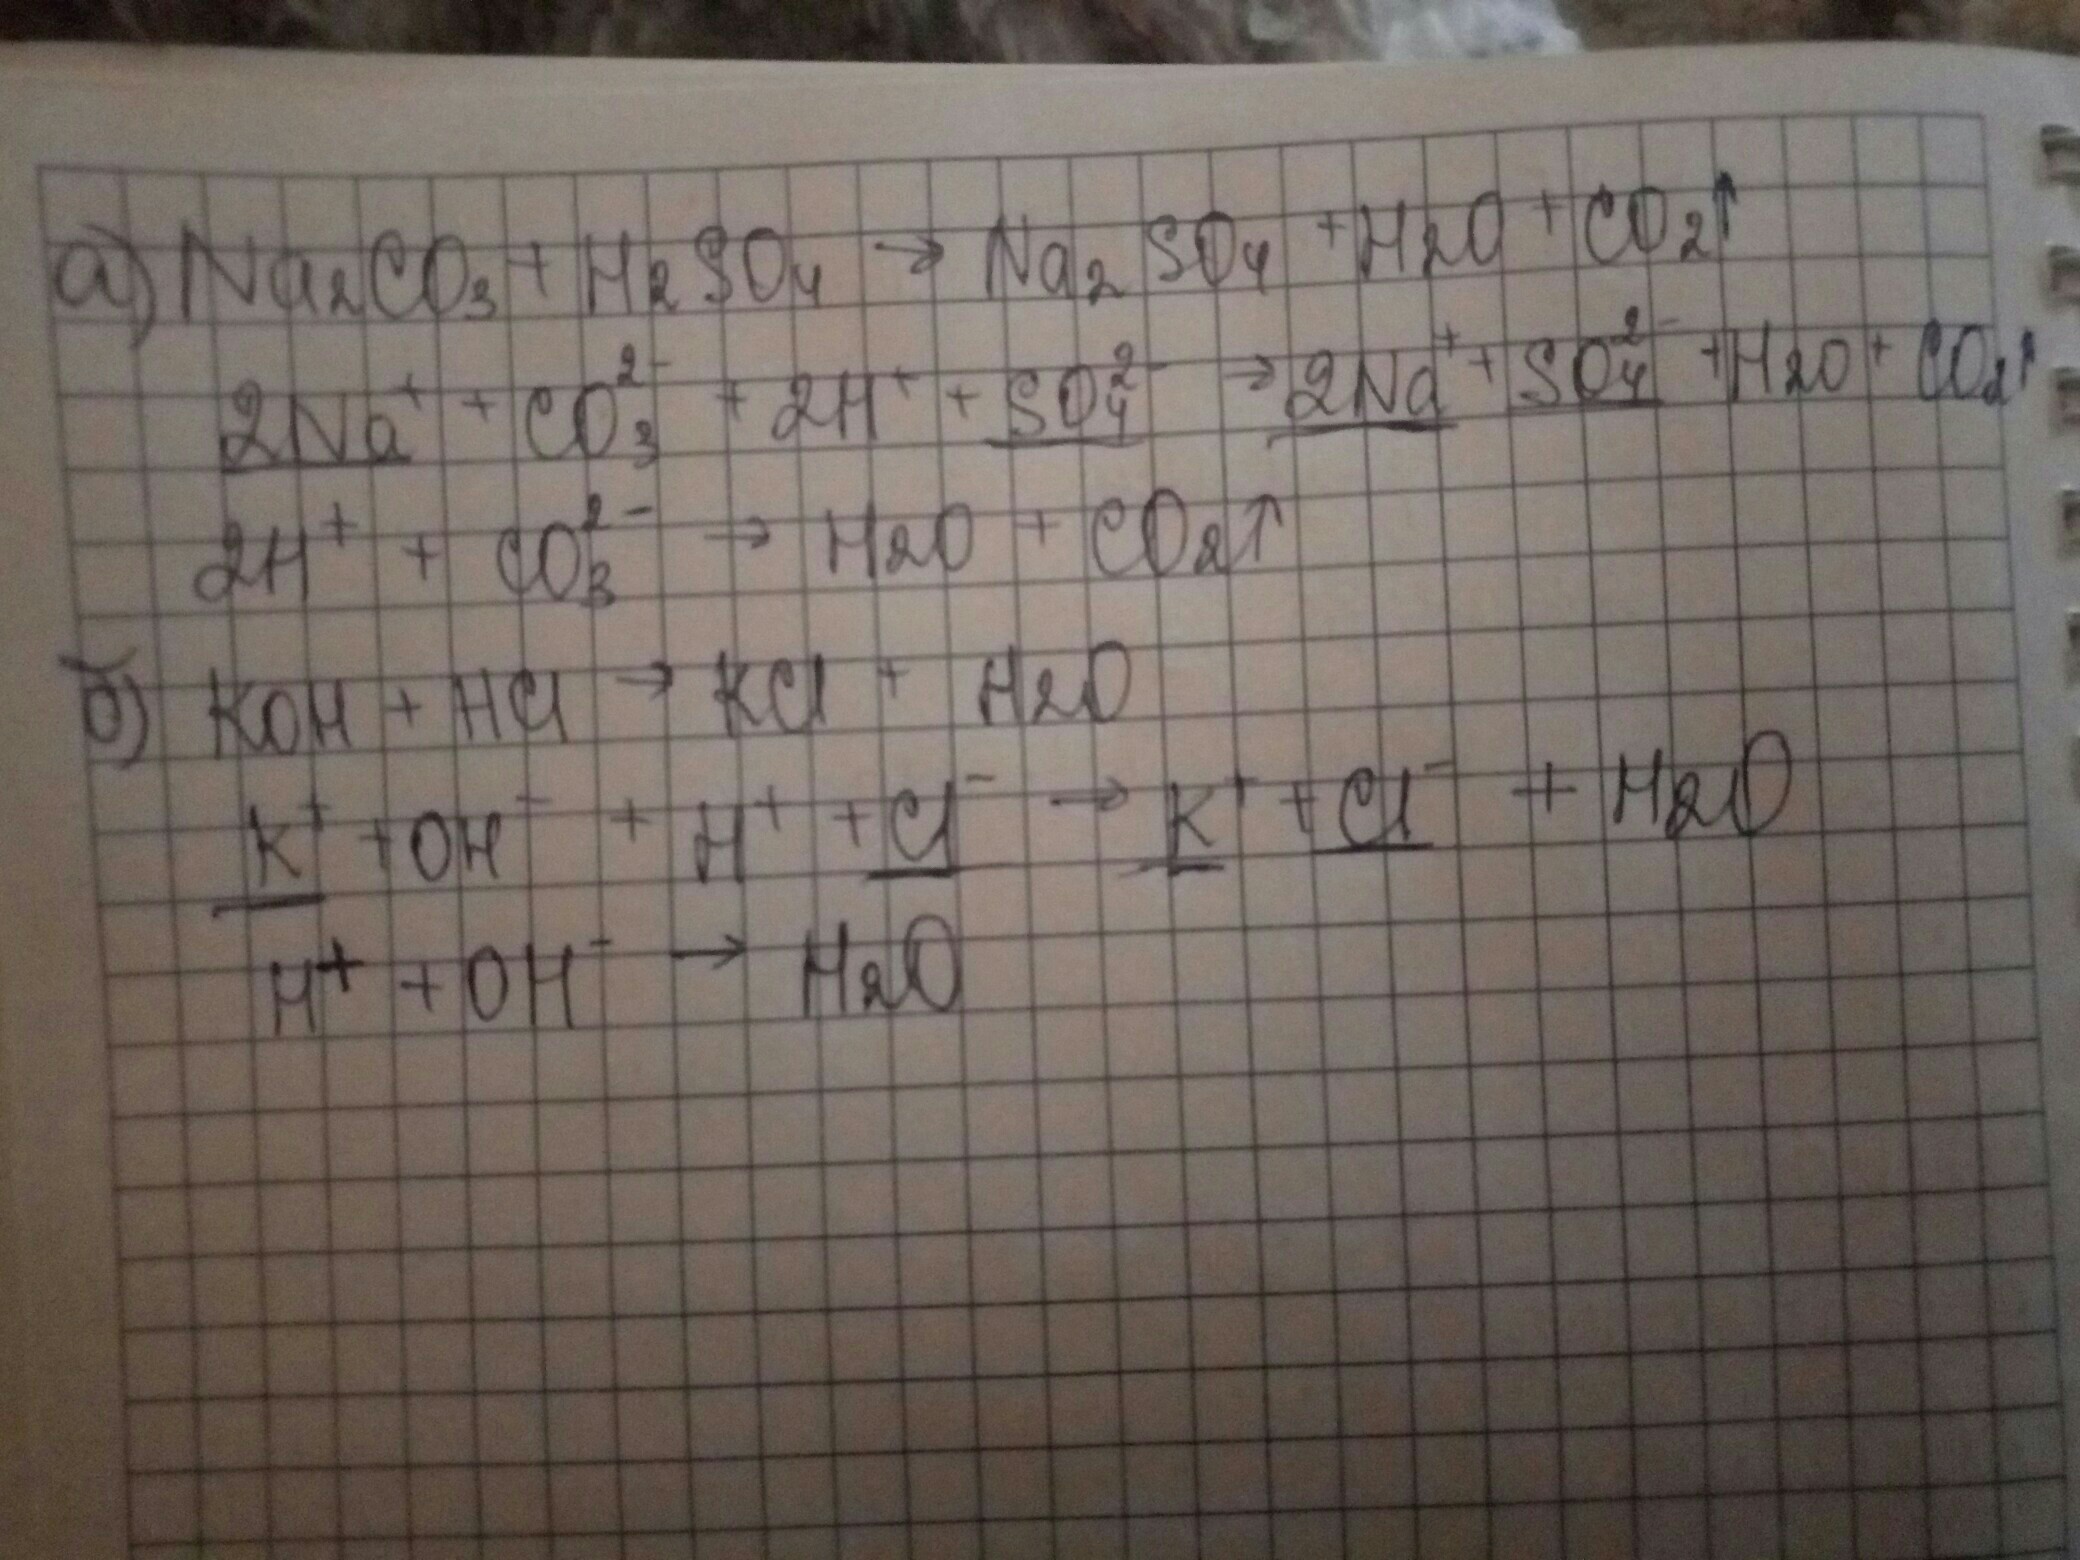 а) Na₂CO₃ + H₂SO₄ → Na₂SO₄ + H₂O + CO₂↑
2Na⁺ + CO₃²⁻ + 2H⁺ + SO₄²⁻ → 2Na⁺ + SO₄²⁻ + H₂O + CO₂↑
2H⁺ + CO₃²⁻ → H₂O + CO₂↑
б) KOH + HCl → KCl + H₂O
K⁺ + OH⁻ + H⁺ + Cl⁻ → K⁺ + Cl⁻ + H₂O
H⁺ + OH⁻ → H₂O